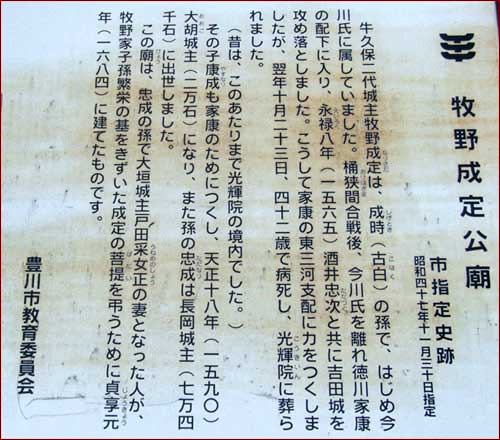 牧野成定公廟
市指定史跡
昭和四十七年十一月三十日指定
牛久保二代城主牧野成定は、成時（古白）の孫で、はじめ今
川氏に属していました。桶狭間合戦後、今川氏を離れ徳川家康
の配下に入り、永禄八年（一五六五）酒井忠次と共に吉田城を
攻め落としました。こうして家康の東三河支配に力をつくしま
したが、翌年十月二十三日、四十二歳で病死し、光輝院に葬ら
れました。
（昔は、このあたりまで光輝院の境内でした。）
その子康成も家康のためにつくし、天正十八年（一五九〇）
大胡城主（二万石）になり、また孫の忠成は長岡城主（七万四
千石）に出世しました。
この廟は、忠成の孫で大垣城主戸田采女正の妻となった人が、
牧野家子孫繁栄の基をきずいた成定の菩提を弔うために貞享元
年（一六八四）に建てたものです。
豊川市教育委員会